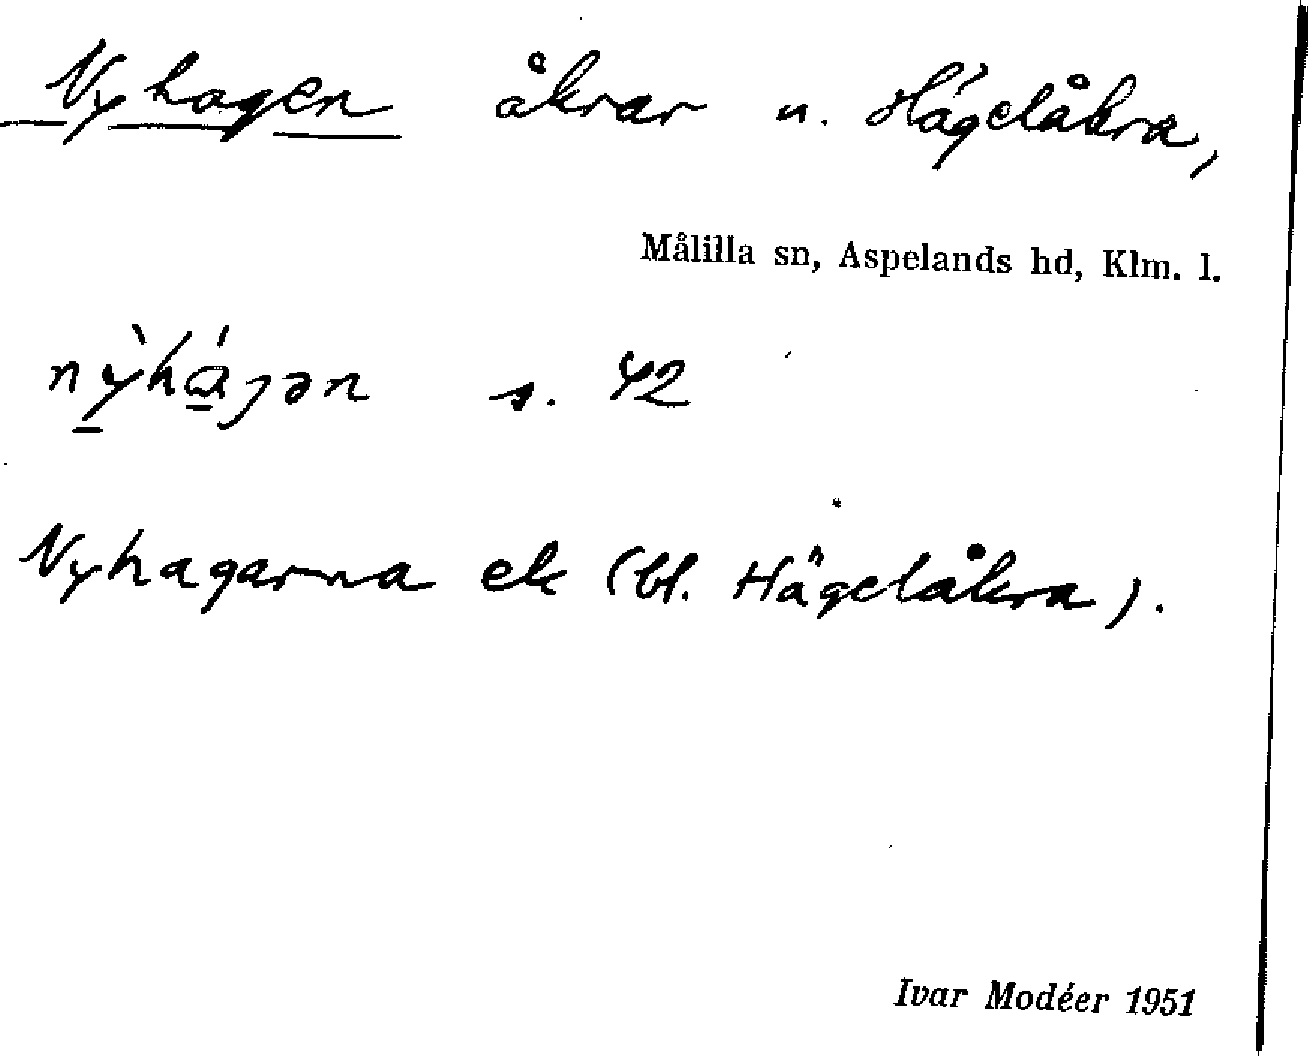 Nyhagen åkrar n. Hägelåkra,
Målilla sn, Aspelands hd, Klm. l.
nỳ̠há̠ȷən s. 42
Nyhagarna ek (bl. Hägelåkra).
Ivar Modéer 1951